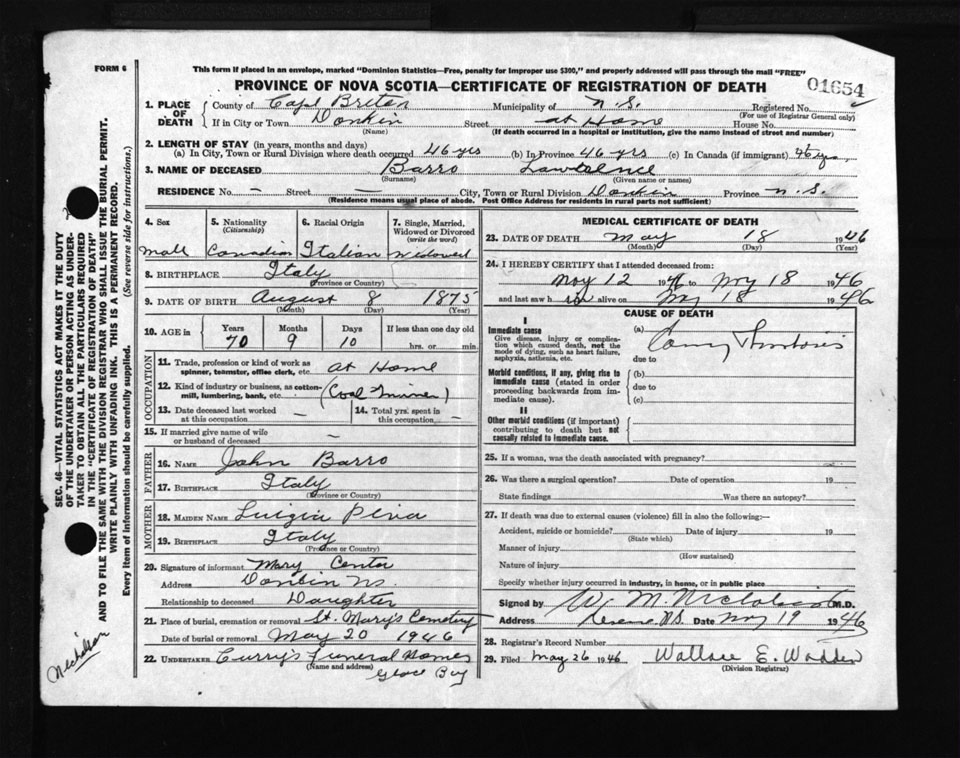 FORM 6
This form if placed in an envelope, marked "Dominion Statistics—Free, penalty for improper use $300," and properly addressed will pass through the mail "FREE"
PROVINCE OF NOVA SCOTIA—CERTIFICATE OF REGISTRATION OF DEATH
01654
1. PLACE OF DEATH
County of Cape Breton Municipality of N.S. Registered No.
(For use of Registrar General only)
If in City or Town Donkin Street at Home House No.
(Name) (If death occurred in a hospital or institution, give the name instead of street and number)
2. LENGTH OF STAY (in years, months and days)
(a) In City, Town or Rural Division where death occurred 46 yrs (b) In Province 46 yrs (c) In Canada (if immigrant) 46 yrs
3. NAME OF DECEASED Barro Lawrence
(Surname) (Given name or names)
RESIDENCE No. – Street — City, Town or Rural Division Donkin Province N.S.
(Residence means usual place of abode. Post Office Address for residents in rural parts not sufficient)
4. Sex
Male
5. Nationality
(Citizenship)
Canadian
6. Racial Origin
Italian
7. Single, Married, Widowed or Divorced
(write the word)
Widowed
8. BIRTHPLACE Italy
(Province or Country)
9. DATE OF BIRTH August 8 1875
(Month) (Day) (Year)
10. AGE in
Years Months Days If less than one day old
70 9 10 hrs. or min.
OCCUPATION
11. Trade, profession or kind of work as spinner, teamster, office clerk, etc. at Home
12. Kind of industry or business, as cotton-mill, lumbering, bank, etc. (Coal Miner)
13. Date deceased last worked at this occupation –
14. Total yrs. spent in this occupation –
15. If married give name of wife or husband of deceased –
FATHER
16. NAME John Barro
17. BIRTHPLACE Italy
(Province or Country)
MOTHER
18. MAIDEN NAME Luigia
19. BIRTHPLACE Italy
(Province or Country)
20. Signature of informant Mary
Address Donkin NS.
Relationship to deceased Daughter
21. Place of burial, cremation or removal St. Mary's Cemetery
Date of burial or removal May 20 1946
22. UNDERTAKER Curry's Funeral Homes
(Name and address)
Glace Bay
MEDICAL CERTIFICATE OF DEATH
23. DATE OF DEATH May 18 1946
(Month) (Day) (Year)
24. I HEREBY CERTIFY that I attended deceased from:
May 12 1946 to May 18 1946
and last saw h im alive on May 18 1946
CAUSE OF DEATH
I
Immediate cause
Give disease, injury or complication which caused death, not the mode of dying, such as heart failure, asphyxia, asthenia, etc.
(a)
due to
Morbid conditions, if any, giving rise to immediate cause (stated in order proceeding backwards from immediate cause).
(b)
due to
(c)
II
Other morbid conditions (if important) contributing to death but not causally related to immediate cause.
25. If a woman, was the death associated with pregnancy?
26. Was there a surgical operation? Date of operation 19
State findings Was there an autopsy?
27. If death was due to external causes (violence) fill in also the following:—
Accident, suicide or homicide? Date of injury 19
(State which)
Manner of injury
(How sustained)
Nature of injury
Specify whether injury occurred in industry, in home, or in public place
Signed by W. M. M.D.
Address Reserve N.S. Date May 19 1946
28. Registrar's Record Number
29. Filed May 26 1946 Wallace E. Wadden
(Division Registrar)
SEC. 46—VITAL STATISTICS ACT MAKES IT THE DUTY
OF THE UNDERTAKER OR PERSON ACTING AS UNDER-
TAKER TO OBTAIN ALL THE PARTICULARS REQUIRED
IN THE "CERTIFICATE OF REGISTRATION OF DEATH"
AND TO FILE THE SAME WITH THE DIVISION REGISTRAR WHO SHALL ISSUE THE BURIAL PERMIT.
WRITE PLAINLY WITH UNFADING INK. THIS IS A PERMANENT RECORD.
Every item of information should be carefully supplied. (See reverse side for instructions.)
Nicholson